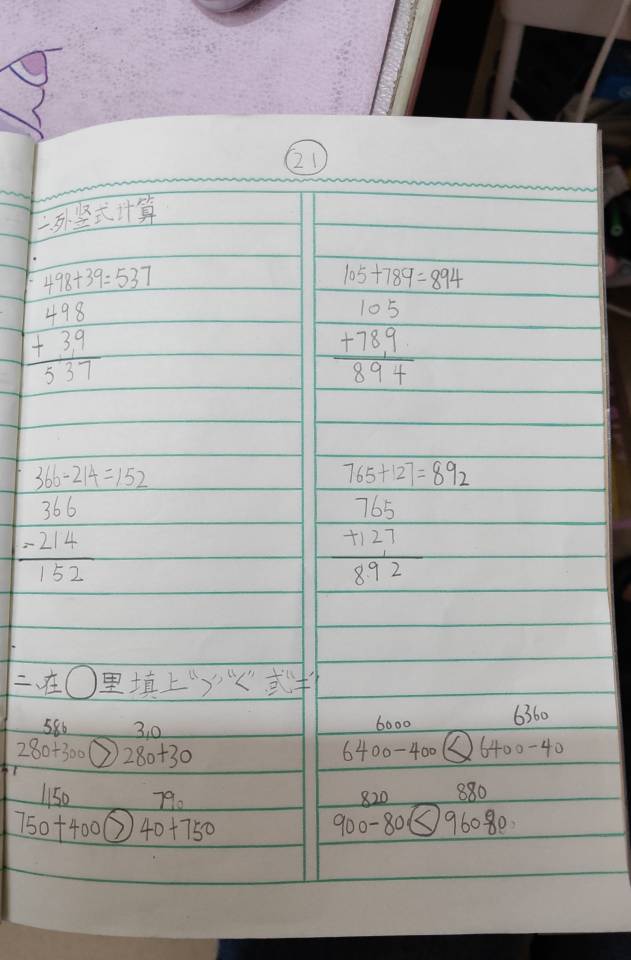 21
一.列竖式计算
498+39=537
498
+ 39
537
105+789=894
105
+789
894
366-214=152
366
-214
152
765+127=892
765
+127
892
二.在○里填上“>”“<”或“=”
580 310
280+300>280+30
6000 6360
6400-400<6400-40
1150 790
750+400>40+750
820 880
900-80<960 80